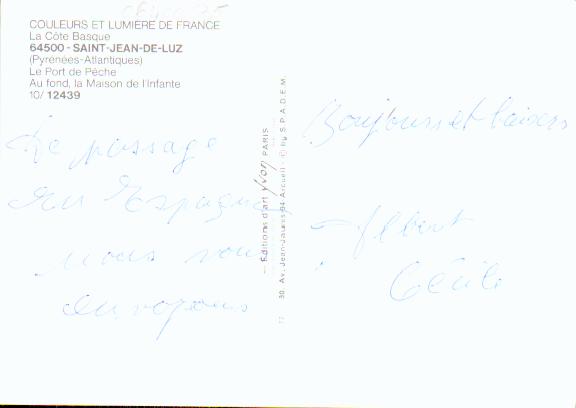 COULEURS ET LUMIÈRE DE FRANCE
La Côte Basque
64500 - SAINT-JEAN-DE-LUZ
(Pyrénées-Atlantiques)
Le Port de Pêche
Au fond, la Maison de l'Infante
10/ 12439
De passage
en Espagne
nous vous
envoyons
Editions d'art Yvon PARIS
30, Av. Jean-Jaurès 94 Arcueil - © by S.P.A.D.E.M.
Bonjours et baisers
Albert
Cécile